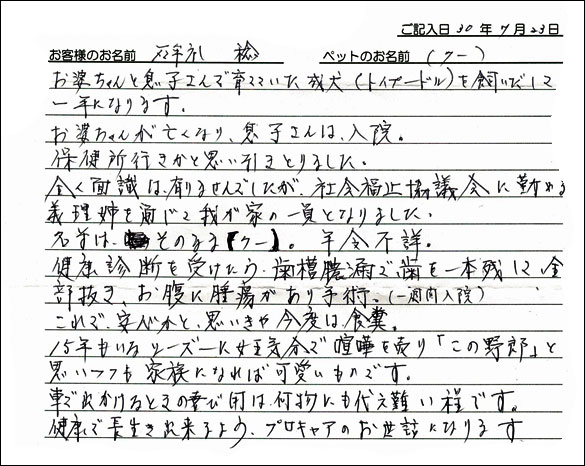 ご記入日 30 年 7 月 23 日
お客様のお名前 ペットのお名前 (クー)
お婆ちゃんと息子さんで育てていた成犬(トイプードル)を飼いだして
一年になります。
お婆ちゃんが亡くなり、息子さんは、入院。
保健所行きかと思い引きとりました。
全く面識は有りませんでしたが、社会福止協議会に勤める
義理姉を通じて我が家の一員となりました。
名前は そのまま【クー】。年令不詳。
健康診断を受けたら、歯槽膿漏で、歯を一本残して全
部抜き、お腹に腫瘍があり手術。(一週間入院)
これで、安心かと、思いきや今度は、食糞。
15年もいるシーズーに女王気分で喧嘩を売り「この野郎」と
思いつつも家族になれば可愛いものです。
車で出かけるときの喜び用は、何物にも代え難い程です。
健康で長生き出来るよう、プロキャアのお世話になります